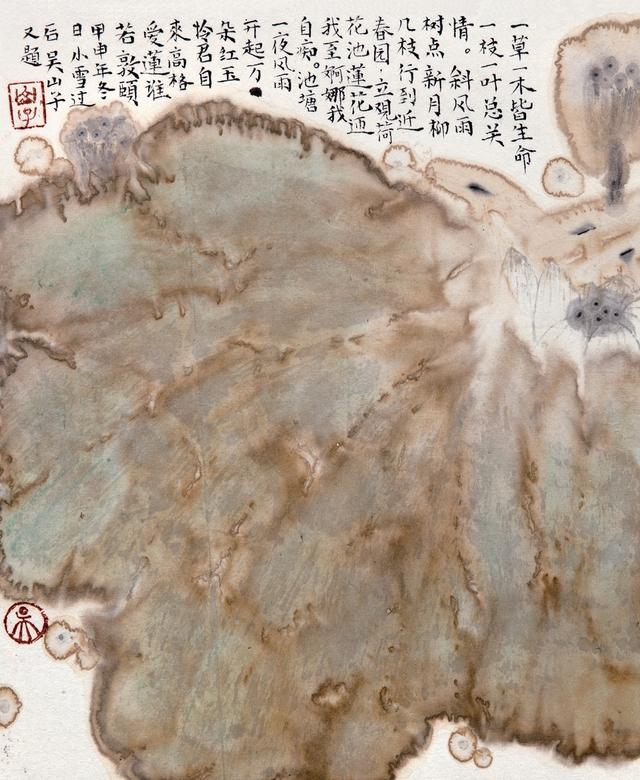 一草一木皆生命
一枝一叶总关
情。斜风雨
树点新月柳
几枝行到近
春园立观荷
花池蓮花
我至婀娜我
自痴。池塘
一夜风雨
开起万
朵红玉
怜君自
來高格
愛蓮誰
若敦頤
甲申年冬
日小雪过
后吴山子
又題